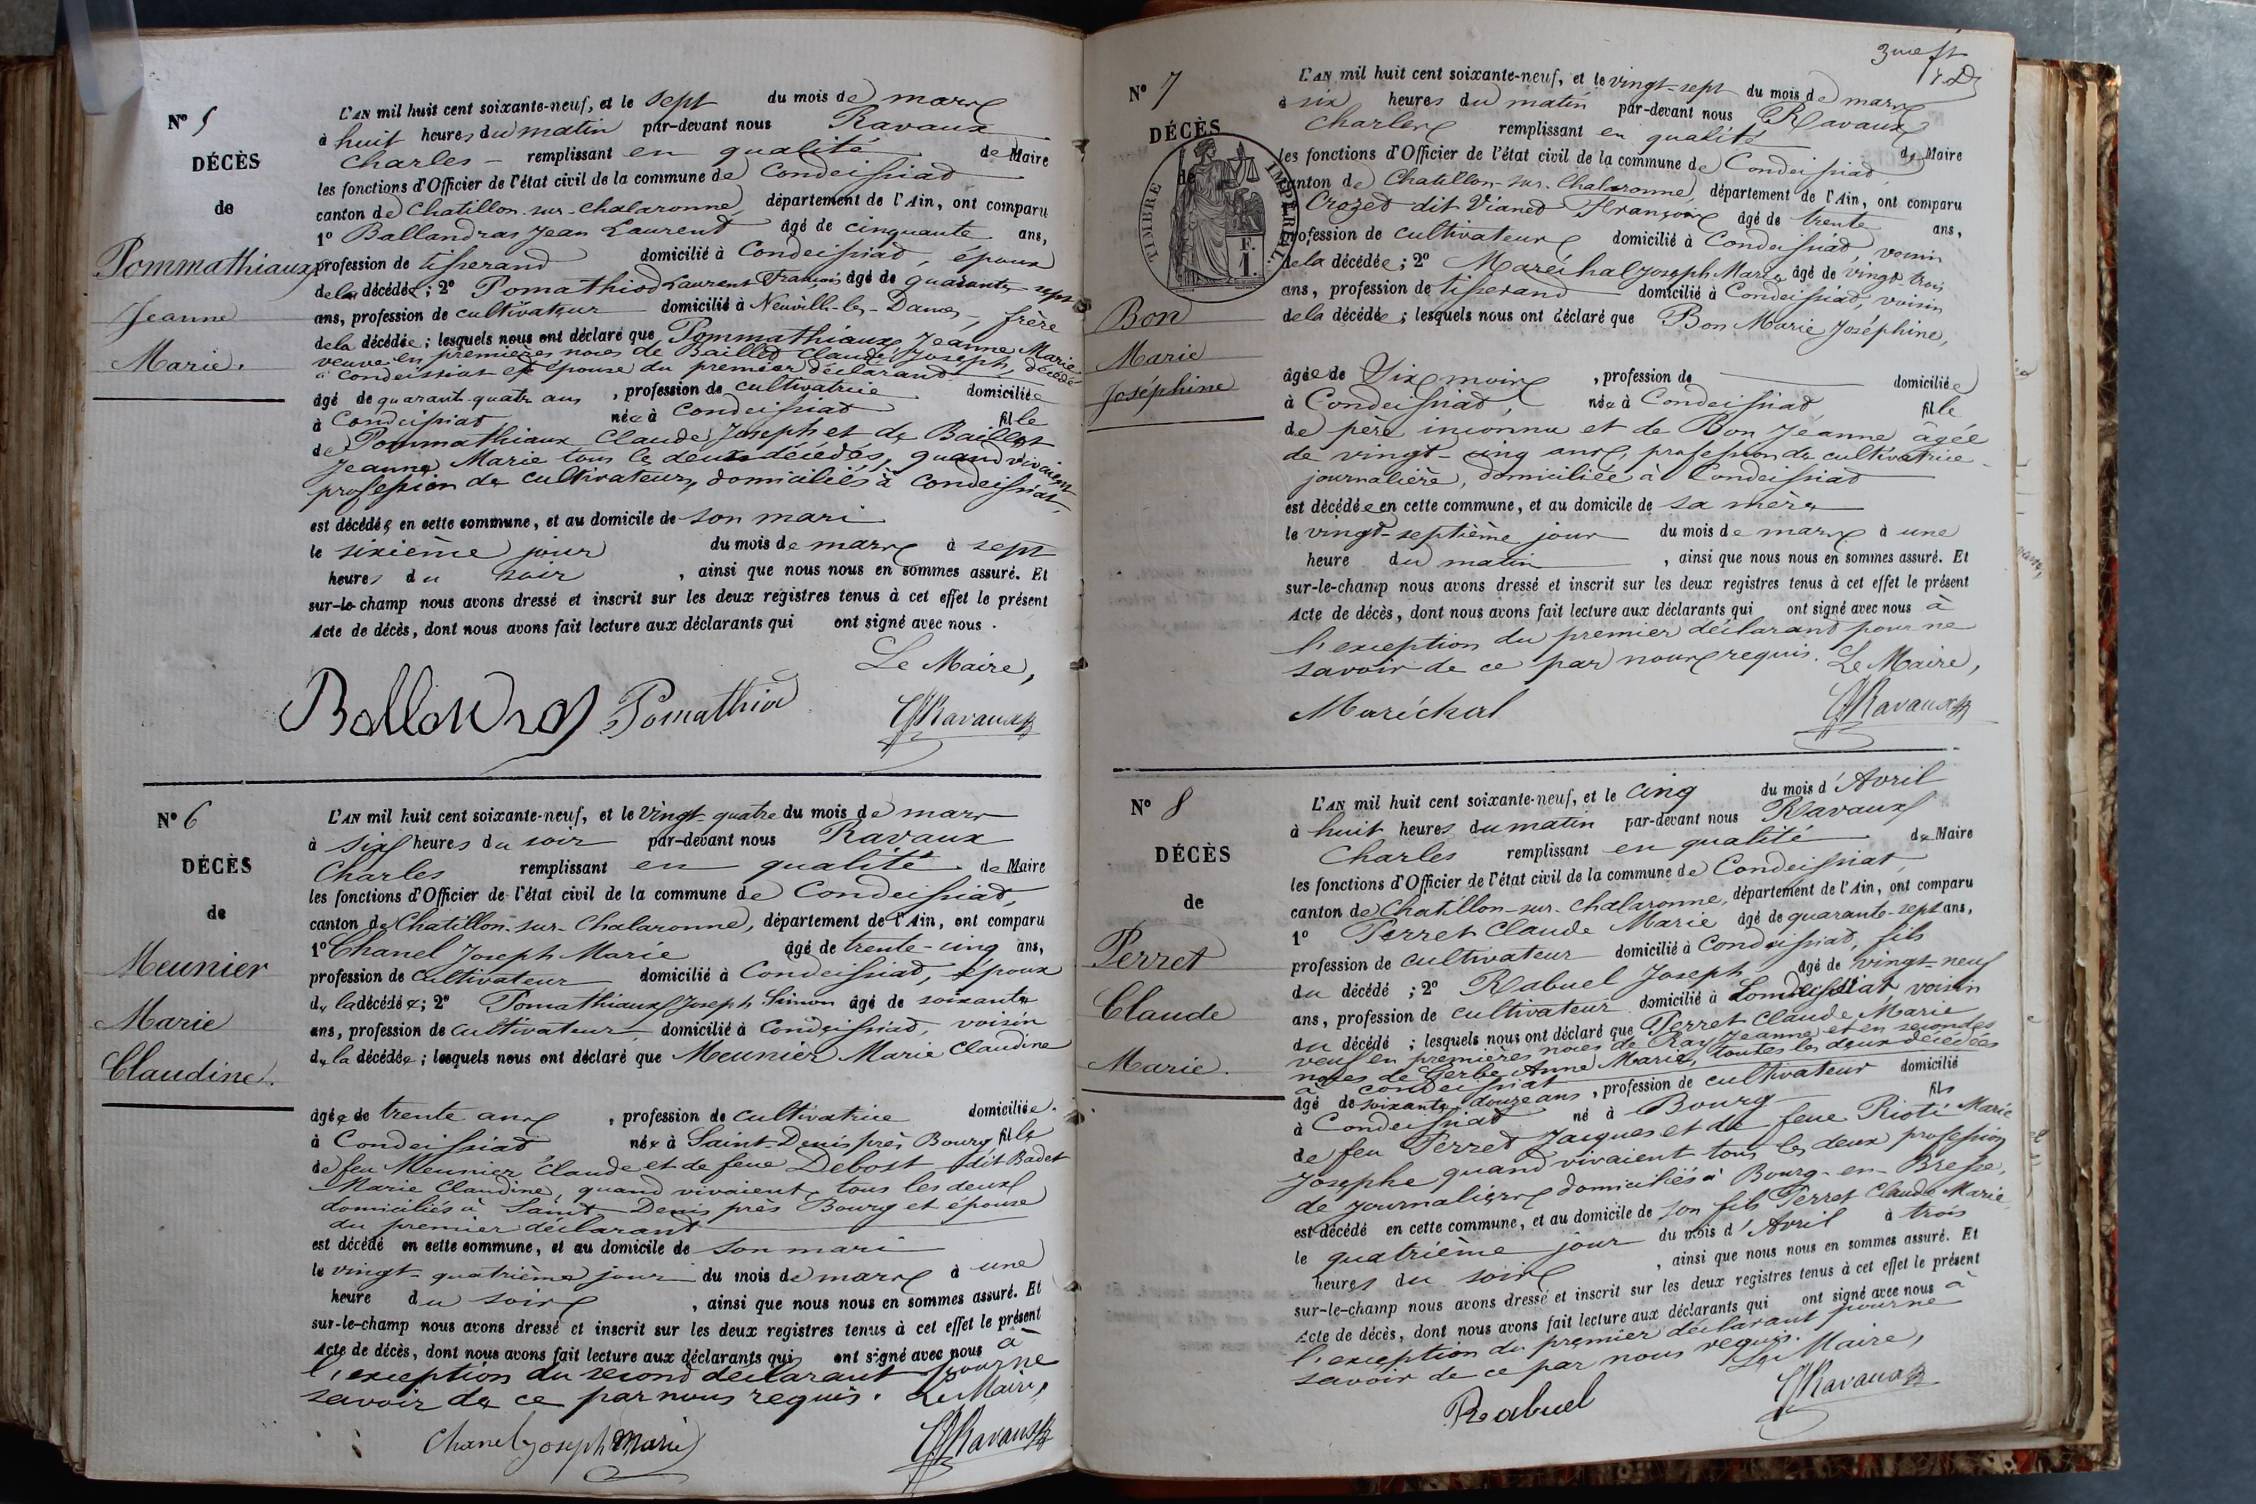 N° 5
DÉCÈS
de
Pommathiaux
Jeanne
Marie.
L'AN mil huit cent soixante-neuf, et le sept du mois de mars
à huit heures du matin par-devant nous Ravaux
Charles - remplissant en qualité de Maire
les fonctions d'Officier de l'état civil de la commune de Condeissiat
canton de Chatillon-sur-Chalaronne, département de l'Ain, ont comparu
1° Ballandras Jean Laurent âgé de cinquante ans,
profession de tisserand domicilié à Condeissiat, époux
de la décédée; 2° Pomathiod Laurent François âgé de quarante-sept
ans, profession de cultivateur domicilié à Neuville-les-Dames, frère
de la décédée; lesquels nous ont déclaré que Pommathiaux Jeanne Marie
veuve en premières noces de Baillet Claude Joseph, décédé
à Condeissiat et épouse du premier déclarant
âgé de quarante quatre ans, profession de cultivatrice domiciliée
à Condeissiat née à Condeissiat fille
de Pommathiaux Claude Joseph et de Baillet
Jeanne Marie tous les deux décédés, quand vivaient
profession de cultivateurs, domiciliés à Condeissiat,
est décédée en cette commune, et au domicile de son mari
le sixième jour du mois de mars à sept
heures du soir, ainsi que nous nous en sommes assuré. Et
sur-le-champ nous avons dressé et inscrit sur les deux registres tenus à cet effet le présent
Acte de décès, dont nous avons fait lecture aux déclarants qui ont signé avec nous.
Le Maire,
Ballandras Pomathiod CRavaux
N° 6
DÉCÈS
de
Meunier
Marie
Claudine.
L'AN mil huit cent soixante-neuf, et le vingt-quatre du mois de mars
à six heures du soir par-devant nous Ravaux
Charles remplissant en qualité de Maire
les fonctions d'Officier de l'état civil de la commune de Condeissiat,
canton de Chatillon-sur-Chalaronne, département de l'Ain, ont comparu
1° Chanel Joseph Marie âgé de trente-cinq ans,
profession de cultivateur domicilié à Condeissiat, époux
de la décédée; 2° Pomathiaux Joseph Simon âgé de soixante
ans, profession de cultivateur domicilié à Condeissiat, voisin
de la décédée; lesquels nous ont déclaré que Meunier Marie Claudine
âgée de trente ans, profession de cultivatrice domiciliée
à Condeissiat née à Saint-Denis près Bourg fille
de feu Meunier Claude et de feue Debost dit Badet
Marie Claudine, quand vivaient tous les deux
domiciliés à Saint-Denis près Bourg et épouse
du premier déclarant
est décédé en cette commune, et au domicile de son mari
le vingt-quatrième jour du mois de mars à une
heure du soir, ainsi que nous nous en sommes assuré. Et
sur-le-champ nous avons dressé et inscrit sur les deux registres tenus à cet effet le présent
Acte de décès, dont nous avons fait lecture aux déclarants qui ont signé avec nous à
l'exception du second déclarant pour ne
savoir de ce par nous requis. Le Maire,
Chanel Joseph Marie CRavaux
N° 7
DÉCÈS
de
TIMBRE IMPÉRIAL
1 F.
Bon
Marie
Joséphine
L'AN mil huit cent soixante-neuf, et le vingt-sept du mois de mars
à six heures du matin par-devant nous Ravaux
Charles remplissant en qualité de Maire
les fonctions d'Officier de l'état civil de la commune de Condeissiat
canton de Chatillon-sur-Chalaronne, département de l'Ain, ont comparu
Crozet dit Vianet François âgé de trente ans,
profession de cultivateur domicilié à Condeissiat, voisin
de la décédée; 2° Maréchal Joseph Marie âgé de vingt-trois
ans, profession de tisserand domicilié à Condeissiat, voisin
de la décédée; lesquels nous ont déclaré que Bon Marie Joséphine,
âgée de six mois, profession de domiciliée
à Condeissiat, née à Condeissiat, fille
de père inconnu et de Bon Jeanne âgée
de vingt-cinq ans, profession de cultivatrice
journalière, domiciliée à Condeissiat
est décédée en cette commune, et au domicile de sa mère
le vingt-septième jour du mois de mars à une
heure du matin, ainsi que nous nous en sommes assuré. Et
sur-le-champ nous avons dressé et inscrit sur les deux registres tenus à cet effet le présent
Acte de décès, dont nous avons fait lecture aux déclarants qui ont signé avec nous à
l'exception du premier déclarant pour ne
savoir de ce par nous requis. Le Maire,
Maréchal CRavaux
N° 8
DÉCÈS
de
Perret
Claude
Marie.
L'AN mil huit cent soixante-neuf, et le cinq du mois d'Avril
à huit heures du matin par-devant nous Ravaux
Charles remplissant en qualité de Maire
les fonctions d'Officier de l'état civil de la commune de Condeissiat
canton de Chatillon-sur-Chalaronne, département de l'Ain, ont comparu
1° Perret Claude Marie âgé de quarante-sept ans,
profession de cultivateur domicilié à Condeissiat, fils
du décédé; 2° Rabuel Joseph âgé de vingt-neuf
ans, profession de cultivateur domicilié à Condeissiat voisin
du décédé; lesquels nous ont déclaré que Perret Claude Marie
veuf en premières noces de Ray Jeanne et en secondes
noces de Gerbe Anne Marie, toutes les deux décédées
à Condeissiat
âgé de soixante-douze ans, profession de cultivateur domicilié
à Condeissiat né à Bourg fils
de feu Perret Jacques et de feue Rioti Marie
Josephe quand vivaient tous les deux profession
de journaliers domiciliés à Bourg-en-Bresse,
est décédé en cette commune, et au domicile de son fils Perret Claude Marie
le quatrième jour du mois d'Avril à trois
heures du soir, ainsi que nous nous en sommes assuré. Et
sur-le-champ nous avons dressé et inscrit sur les deux registres tenus à cet effet le présent
Acte de décès, dont nous avons fait lecture aux déclarants qui ont signé avec nous à
l'exception du premier déclarant pour ne
savoir de ce par nous requis. Le Maire,
Rabuel CRavaux